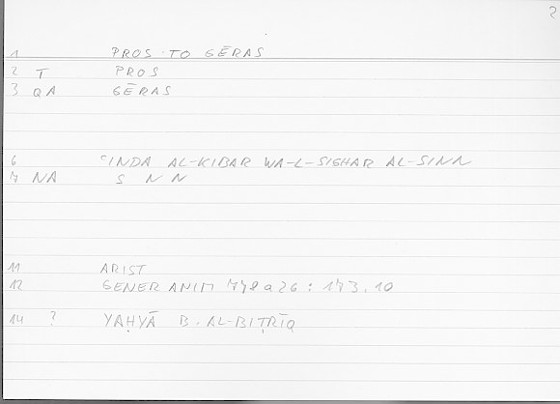 ?
1 PROS TO GĒRAS
2 T PROS
3 QA GĒRAS
6 ʿINDA AL-KIBAR WA-L-SIGHAR AL-SINN
7 NA S N N
11 ARIST
12 GENER ANIM 778a26 : 173.10
14 ? YAḤYĀ B. AL-BIṬRĪQ